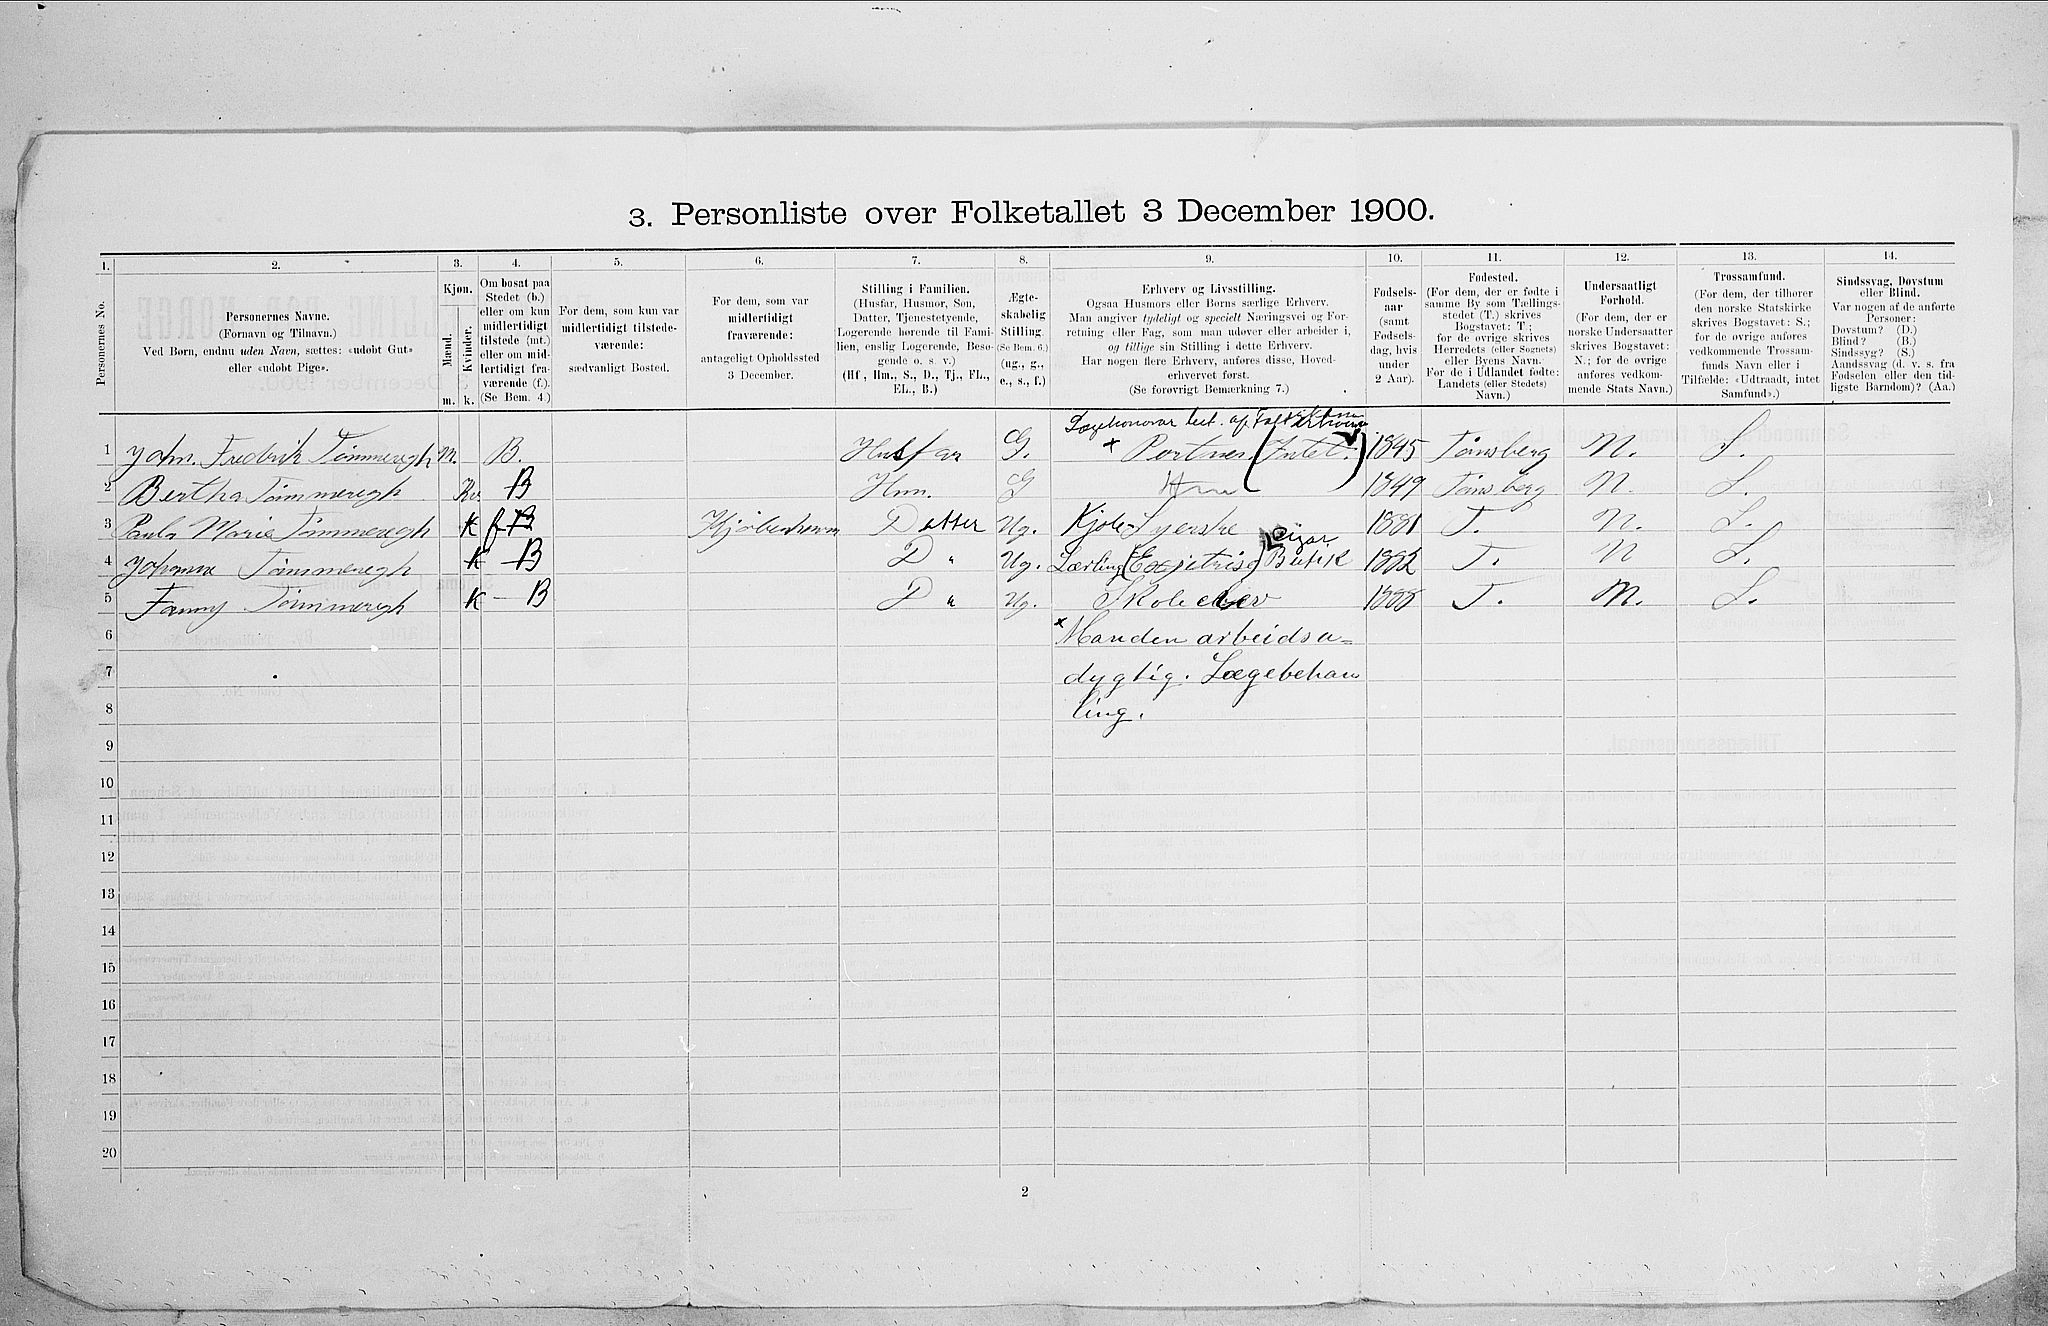 3. Personliste over Folketallet 3 December 1900.
1. 2. 3. 4. 5. 6. 7. 8. 9. 10. 11. 12. 13. 14.
Personernes No.
Personernes Navne.
(Fornavn og Tilnavn.)
Ved Børn, endnu uden Navn, sættes: «udøbt Gut»
eller «udøbt Pige».
Kjøn.
Mænd.
Kvinder.
m. k.
Om bosat paa
Stedet (b.)
eller om kun
midlertidigt
tilstede (mt.)
eller om mid-
lertidigt fra-
værende (f.).
(Se Bem. 4.)
For dem, som kun var
midlertidigt tilstede-
værende:
sædvanligt Bosted.
For dem, som var
midlertidigt
fraværende:
antageligt Opholdssted
3 December.
Stilling i Familien.
(Husfar, Husmor, Søn,
Datter, Tjenestetyende,
Logerende hørende til Fami-
lien, enslig Logerende, Besø-
gende o. s. v.)
(Hf., Hm., S., D., Tj., FL.,
EL., B.)
Ægte-
skabelig
Stilling.
(Se Bem. 6.)
(ug., g.,
e., s., f.)
Erhverv og Livsstilling.
Ogsaa Husmors eller Børns særlige Erhverv.
Man angiver tydeligt og specielt Næringsvei og For-
retning eller Fag, som man udøver eller arbeider i,
og tillige sin Stilling i dette Erhverv.
Har nogen flere Erhverv, anføres disse, Hoved-
erhvervet først.
(Se forøvrigt Bemærkning 7.)
Fødsels-
aar
(samt
Fødsels-
dag, hvis
under
2 Aar).
Fødested.
(For dem, der er fødte i
samme By som Tællings-
stedet (T.) skrives
Bogstavet: T.;
for de øvrige skrives
Herredets (eller Sognets)
eller Byens Navn.
For de i Udlandet fødte:
Landets (eller Stedets)
Navn.)
Undersaatligt
Forhold.
(For dem, der er
norske Undersaatter
skrives Bogstavet:
N.; for de øvrige
anføres vedkom-
mende Stats Navn.)
Trossamfund.
(For dem, der tilhører
den norske Statskirke
skrives Bogstavet: S.;
for de øvrige anføres
vedkommende Trossam-
funds Navn eller i
Tilfælde: «Udtraadt, intet
Samfund».)
Sindssvag, Døvstum
eller Blind.
Var nogen af de anførte
Personer:
Døvstum? (D.)
Blind? (B.)
Sindssyg? (S.)
Aandssvag (d. v. s. fra
Fødselen eller den tid-
ligste Barndom)? (Aa.)
1 John. Fredrik Tømmeregh M. B. Husfar G. × Portner (Intet.) 1845 Tønsberg N. S.
2 Bertha Tømmeregh Kv. B Hm. G Hm 1849 Tønsberg N. S.
3 Paula Marie Tømmeregh K f B Kjøbenhavn Datter Ug. Kjole-Syerske 1881 T. N. S.
4 Johanna Tømmeregh K B D " Ug. Lærling Cigar Butik 1882 T. N S.
5 Fanny Tømmeregh K B D " Ug. Skoleelev 1888 T. N. S.
6 × Manden arbeidsu-
7 dygtig. Lægebehan
8 ling.
9
10
11
12
13
14
15
16
17
18
19
20
2